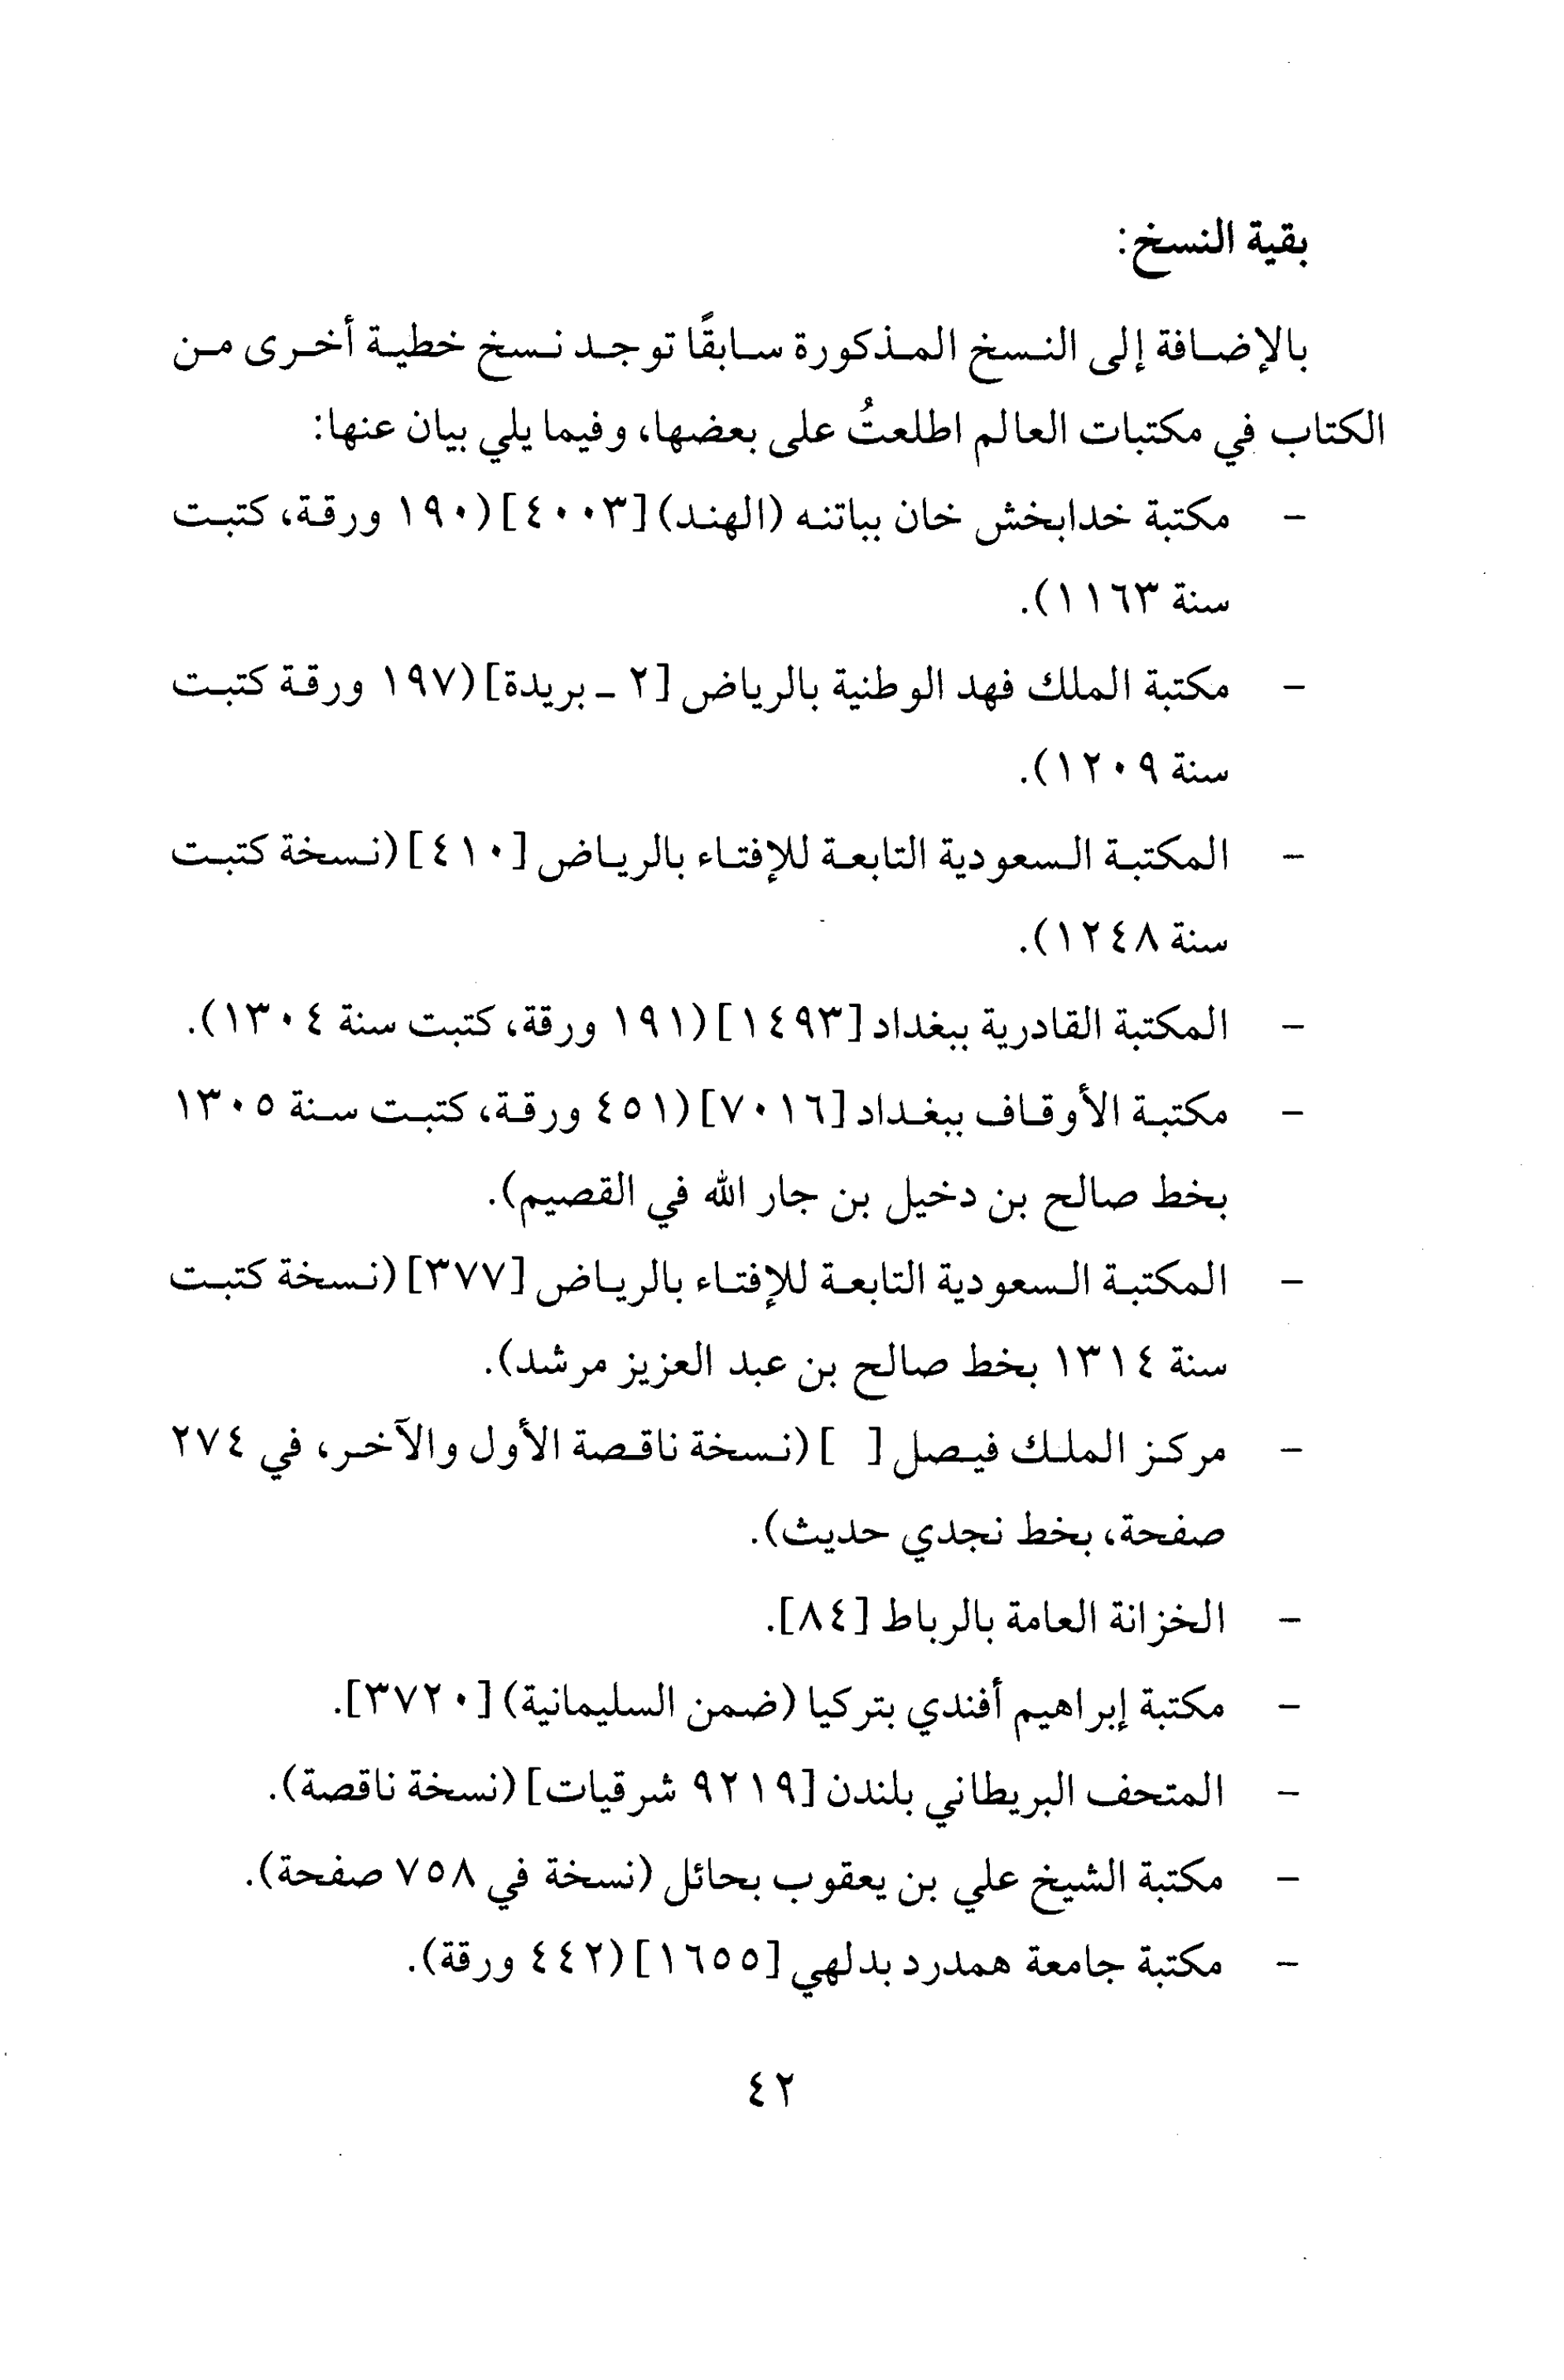 بقية النسخ:
بالإضافة إلى النسخ المذكورة سابقًا توجد نسخ خطية أخرى من
الكتاب في مكتبات العالم اطلعتُ على بعضها، وفيما يلي بيان عنها:
- مكتبة خدابخش خان بباتنه (الهند) [٤٠٠٣] (١٩٠ ورقة، كتبت
سنة ١١٦٣).
- مكتبة الملك فهد الوطنية بالرياض [٢ - بريدة] (١٩٧ ورقة كتبت
سنة ١٢٠٩).
- المكتبة السعودية التابعة للإفتاء بالرياض [٤١٠] (نسخة كتبت
سنة ١٢٤٨).
- المكتبة القادرية ببغداد [١٤٩٣] (١٩١ ورقة، كتبت سنة ١٣٠٤).
- مكتبة الأوقاف ببغداد [٧٠١٦] (٤٥١ ورقة، كتبت سنة ١٣٠٥
بخط صالح بن دخيل بن جار الله في القصيم).
- المكتبة السعودية التابعة للإفتاء بالرياض [٣٧٧] (نسخة كتبت
سنة ١٣١٤ بخط صالح بن عبد العزيز مرشد).
- مركز الملك فيصل [ ] (نسخة ناقصة الأول والآخر، في ٢٧٤
صفحة، بخط نجدي حديث).
- الخزانة العامة بالرباط [٨٤].
- مكتبة إبراهيم أفندي بتركيا (ضمن السليمانية) [٣٧٢٠].
- المتحف البريطاني بلندن [٩٢١٩ شرقيات] (نسخة ناقصة).
- مكتبة الشيخ علي بن يعقوب بحائل (نسخة في ٧٥٨ صفحة).
- مكتبة جامعة همدرد بدلهي [١٦٥٥] (٤٤٢ ورقة).
٤٢